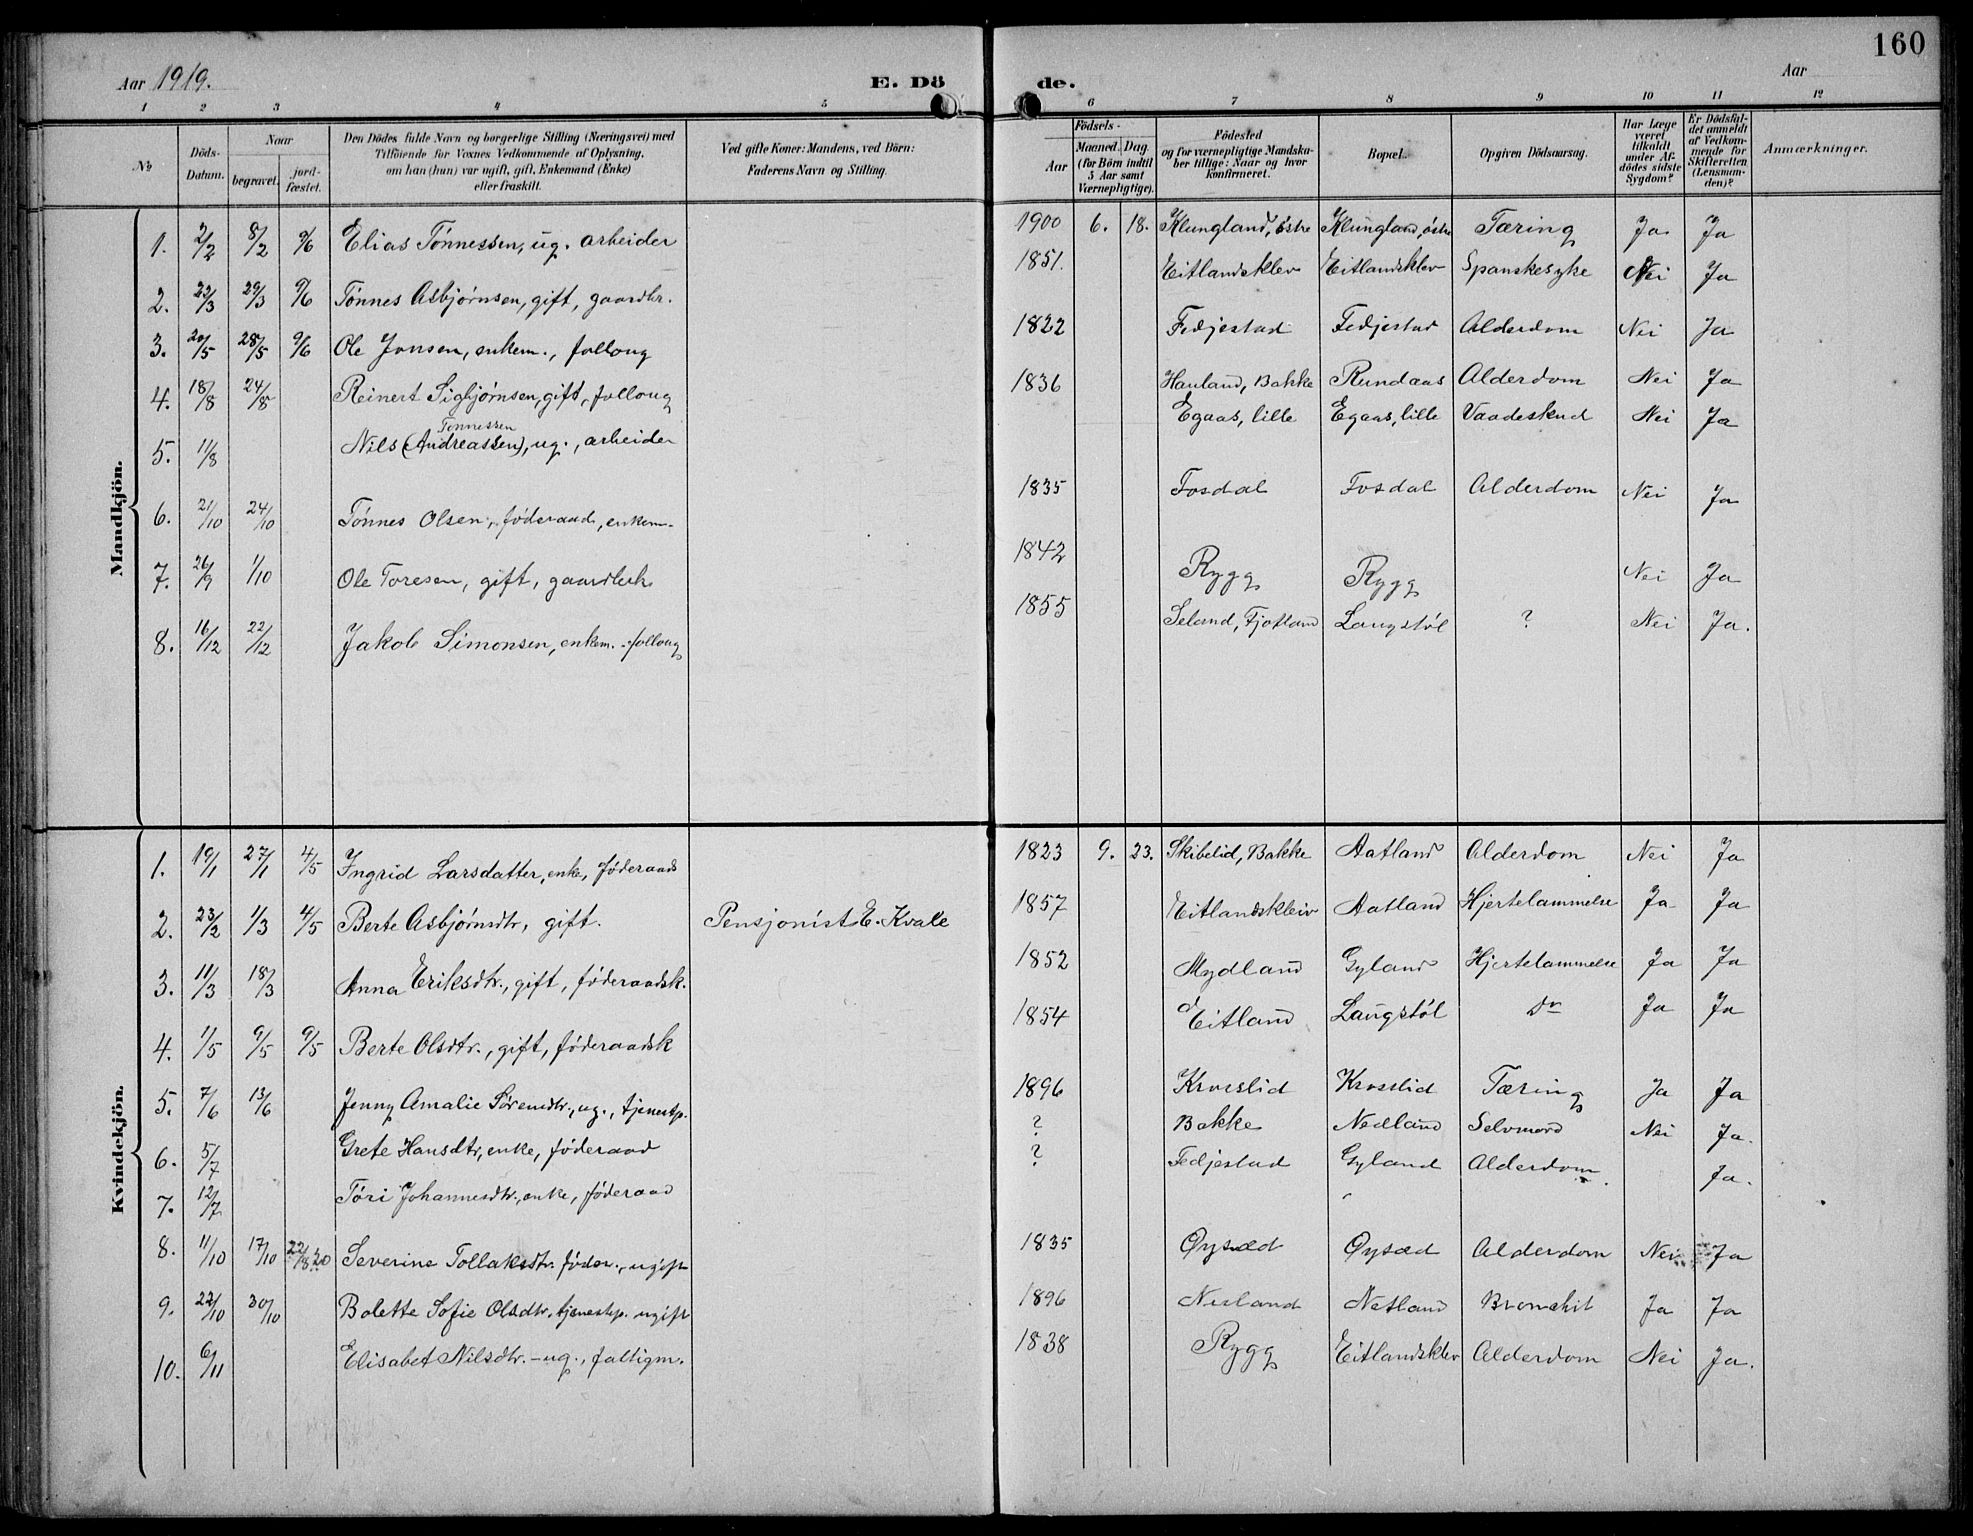 160
Aar 1919. E. Dö de. Aar
1 2 3 4 5 6 7 8 9 10 11 12
No
Döds-
Datum.
Naar
begravet.
jord-
fæstet.
Den Dödes fulde Navn og borgerlige Stilling (Næringsvei) med
Tilföiende for Voxnes Vedkommende af Oplysning,
om han (hun) var ugift, gift, Enkemand (Enke)
eller fraskilt.
Ved gifte Koner: Mandens, ved Börn:
Faderens Navn og Stilling.
Födsels-
Aar
Maaned. Dag.
(for Börn indtil
5 Aar samt
Værnepligtige).
Födested
og for værnepligtige Mandska-
ber tillige: Naar og hvor
konfirmeret.
Bopæl.
Opgiven Dödsaarsag.
Har Læge
været
tilkaldt
under Af-
dödes sidste
Sygdom?
Er Dödsfal-
det anmeldt
af Vedkom-
mende for
Skifteretten
(Lensman-
den)?
Anmærkninger.
Mandkjön.
1. 2/2 8/2 9/6 Elias Tönnessen, ug. arbeider 1900 6. 18. Klungland, östre Klungland, östre Tæring Ja Ja
2. 22/3 29/3 9/6 Tönnes Asbjørnsen, gift, gaardbr. 1851. Eitlandsklev Eitlandsklev Spanskesyke Nei Ja
3. 20/5 28/5 9/6 Ole Jonsen, enkem., follaug 1822 Fedjestad Fedjestad Alderdom Nei Ja
4. 18/8 24/8 Reinert Sigbjørnsen, gift, follaug 1836 Hauland, Bakke Rundaas Alderdom Nei Ja
Tönnessen
5. 11/8 Nils (Andreassen), ug., arbeider Egaas, lille Egaas, lille Vaadeskud Nei Ja
6. 21/10 24/10 Tönnes Olsen, föderaad, enkem. 1835 Fosdal Fosdal Alderdom Nei Ja
7. 26/9 1/10 Ole Toresen, gift, gaardbr. 1842 Rygg Rygg Nei Ja
8. 16/12 22/12 Jakob Simonsen, enkem. follaug 1855 Seland, Fjotland Langstöl ? Nei Ja.
Kvindekjön.
1. 19/1 27/1 4/5 Ingrid Larsdatter, enke, föderaads 1823 9. 23. Skibelid, Bakke Aatland Alderdom Nei Ja
2. 23/2 1/3 4/5 Berte Asbjørnsdtr, gift. Pensjonist E. Kvale 1857 Eitlandskleiv Aatland Hjertelammelse Ja Ja
3. 11/3 18/3 Anna Eriksdtr., gift, föderaadsk. 1852 Mydland Gyland Hjertelammelse Ja Ja
4. 1/5 9/5 9/5 Berte Olsdtr., gift, föderaadsk 1854 Eitland Langstöl Do Ja Ja
5. 7/6 13/6 Jenny Amalie Sörensdtr., ug., tjenestp. 1896 Krosslid Krosslid Tæring Ja Ja
6. 5/7 Grete Hansdtr, enke, föderaad ? Bakke Nedland Selvmord Nei Ja.
7. 12/7 Töri Johannesdtr., enke, föderaad ? Fedjestad Gyland Alderdom. Ja.
8. 11/10 17/10 22/8 20 Severine Tollaksdtr. föder., ugift 1835 Øysæd Øysæd Alderdom Nei Ja
9. 22/10 30/10 Bolette Sofie Olsdtr. tjenestp. ugift 1896 Nesland Netland Bronchit Ja Ja
10. 6/11 Elisabet Nilsdtr. - ug., fattigm. 1838 Rygg Eitlandsklev Alderdom Nei Ja.